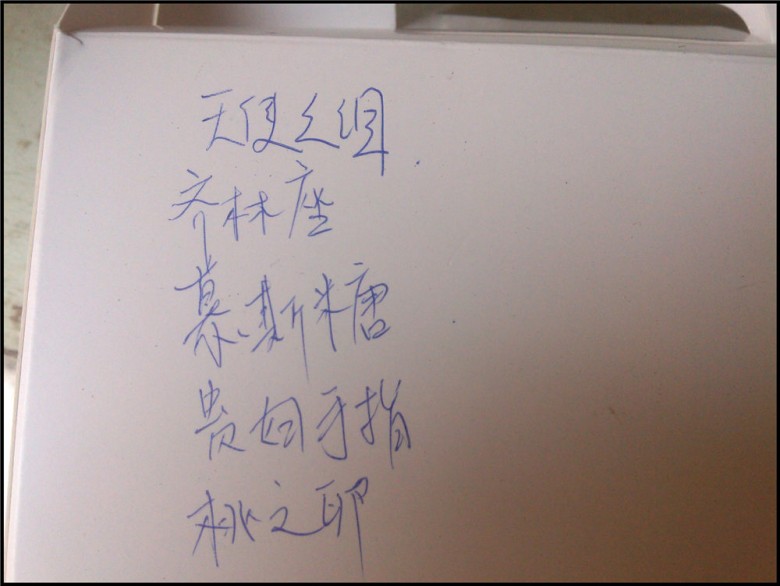 天使之泪
齐林座
慕斯糖
贵妇手指
桃之卵